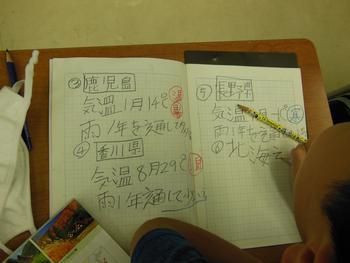 ③鹿児島
気温1月14℃ 温暖
雨1年を通して
④香川県
気温8月29℃
雨1年通して少ない
⑤長野県
気温 月-1℃
雨1年を通
⑥北海